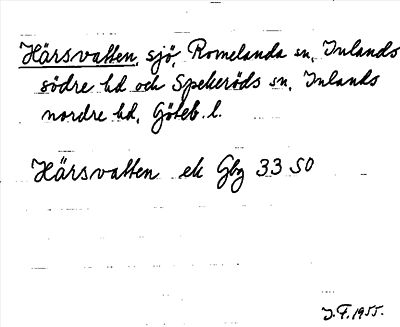 Härsvatten, sjö, Romelanda sn, Inlands
södre hd och Spekeröds sn, Inlands
nordre hd, Göteb. l.
Härsvatten ek Gbg 33 SO
J.F. 1955.